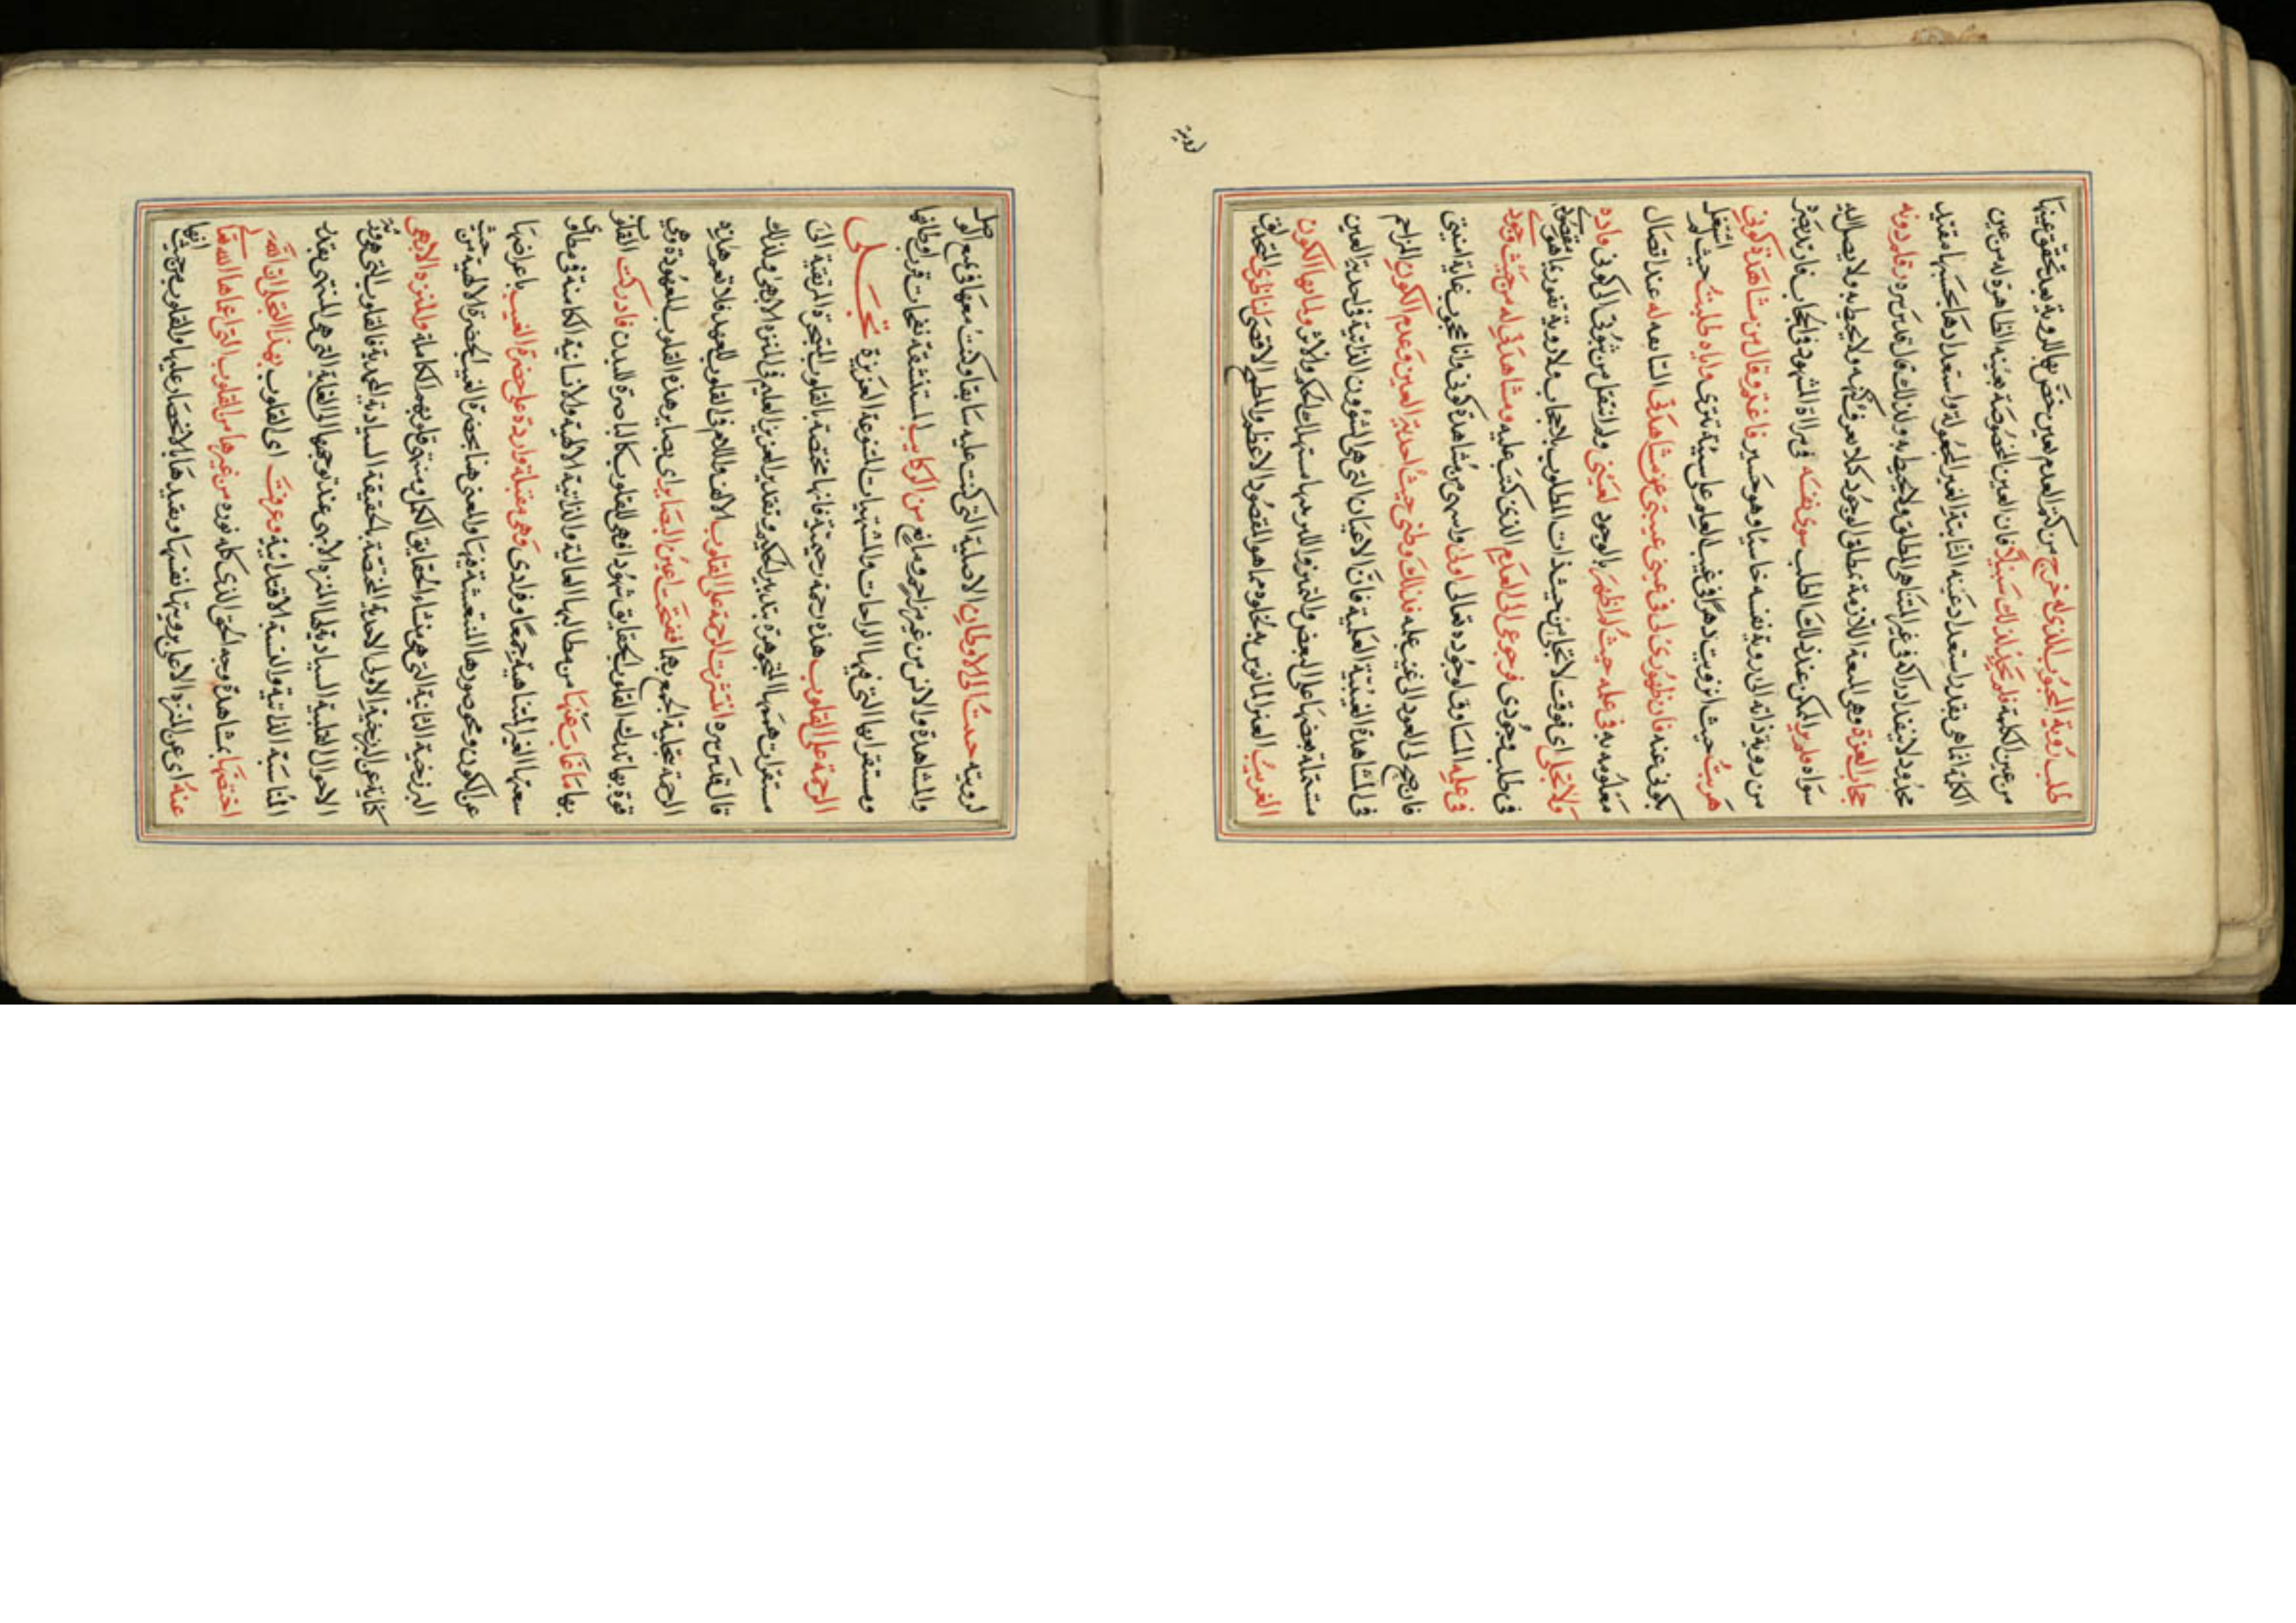 طلب رؤية المحبوب الذي له خرج من كتم العدم لعين خصّ بها للرؤية بعد تحقق عينها
من عين الكلمة فلم يجد لذلك سبيلا فان العين المخصوصة هيئته الظاهرة له من عين
الكلمة انما هي بقدر استعداد عينه الثابتة الغير المجعولة واستعدادها بحسبها مقيد
محدود لا ينفد ادراكه في غير المتناهي المطلق ولا يحيط به ولذلك قال قدس سره قام دونه
حجاب العزة وهي المنعة اللازمة لمطلق الوجود كلا يعرف كنهه ولا يحيط به ولا يصل اليه
سواه فلم ير الممكن عند ذلك الطلب سوى نفسه في مرآة الشهود في الحجاب فارتد بصره
من رؤية ذاته الى رؤية نفسه خاسئا وهو حسير فاغتم وقال من مشاهدة كوني
هربت حيث انزويت دهرا في غيب العلم على سيئة تترى واياه طلبت حيث لم استقل
بكوني عنه فان ظهوري لي في عيني غيبني عن مشاهدتي التابعه له عند اتصال
معلوميته في علمه حيث لم اظهر بالوجود لعيني ولم انتقل من ثبوتي الى كوني واره
ولا تجلى اي فوقت لا تجلى من حيث ذات المطلوب بلا حجاب ولا رؤية تفوز بما هو مقصودي
في طلب وجودي فرجوعي الى العدم الذي كنت عليه ومشاهدتي له من حيث وجود
في علمه المساوق لوجوده تعالى اولى واسهى من مشاهدة كوني وانا محجوب بغاية انيتي
فان رجع لي العود الى غيب علمه فذلك وطني حيث احدية العين وعدم الكون المزاحم
في المشاهدة الغيبية العلمية فان الاعيان التي هي الشؤون الذاتية في احدية العين
مشتملة بعضها على البعض والتميز واللبس مستهلك الحكم والاثر ولما بها الكون
الغريب العنبر المانوس به تخلوه مما هو المقصود الاعظم والمطمح الاقصى لناظري المتحذلق
رؤية
لرويته حدث الى الاوطان الاصلية التي كنت عليه سابقا وكنت معها في عين الوصل
والمشاهدة والانس من غير مزاحم ومانع من الركايب المستنشقة نفحات قرب اوطانها
ومستقراتها التي فيها الراحات والمشتهيات المتنوعة العزيزة تجلى
الرحمة على القلوب هذه رحمة رحيمية فانها مختصة بالقلوب المتبحرة المرتقية الى
مستقرات همتها المتجوهرة بتدبير الحكيم وتقدير العزيز العليم في المنزه الابهى ولذلك
قال قدس سره انتشرت الرحمة على القلوب الالف واللام في القلوب للعهد فلا تعم هذه
الرحمة تجلية الجمع بها ففتحت اعين البصاير اي بصاير هذه القلوب المعهودة وهي
قوة بها تدرك القلوب الحقايق شهودا فهي للقلوب كالباصرة للبدن فادركت القلوب
بها ما غاب عنها من مطالبها العالية والذاتية الالهية والانسانية الكامنة في مطاوي
سعتها الغير المتناهية جمعا وفرادى وهي مقبلة واردة على حضرة الغيب باعراضها
عن الكون ومحو صورها المنتعشة فيها والمعنى هنا بحضرة الغيب الحضرة الالهية من حيث
البرزخية الثانية التي هي منشاء الحقايق الكل ومنتهى قلوبهم الكاملة والمنزه الابهى
كناية عن البرزخية الاولى الاحدية المختصة بالحقيقة السيادية المحمدية فالقلوب التي هي ورثة
الاحوال العلية السيادية لها المنزه الابهى عند توجهها الى الغاية التي هي المنتهى بقدر
المناسبة الذاتية والنسبة الاقتدائية وعرفت اي القلوب بهذا التجلي ان الله
اختصها بمشاهدة وجه الحق الذي كله نوره من غيرها من القلوب التي اعماها الله تعالى
عنه اي عن المنزه الاعلى برؤيتها نفسها وبقيدها بالانحصار عليها والقلوب من حيث انها